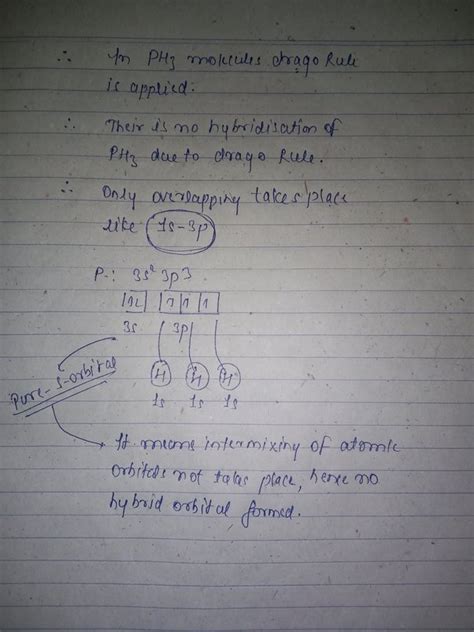 ∴ In PH3 molecules drago Rule
is applied.
∴ Their is no hybridisation of
PH3 due to drago Rule.
∴ Only overlapping takes place
like 1s-3p
P-: 3s² 3p3
1L 1 1 1
3s 3p
Pure-s-orbital
H H H
1s 1s 1s
It means intermixing of atomic
orbitals not takes place, hence no
hybrid orbital formed.